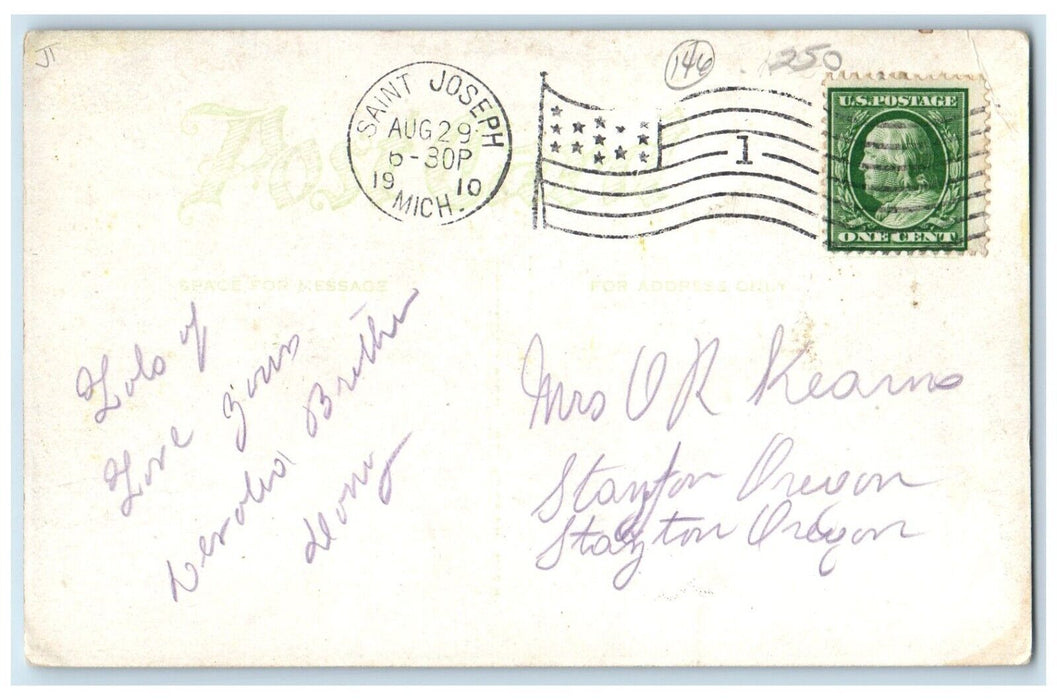 JT
146
250
SAINT JOSEPH
AUG 29
6-30P
19 10
MICH.
1
U.S. POSTAGE
ONE CENT
Post Card
SPACE FOR MESSAGE
FOR ADDRESS ONLY
Lots of
Love Yours
Brother
Mrs O R Kearns
Stayton Oregon
Stayton Oregon